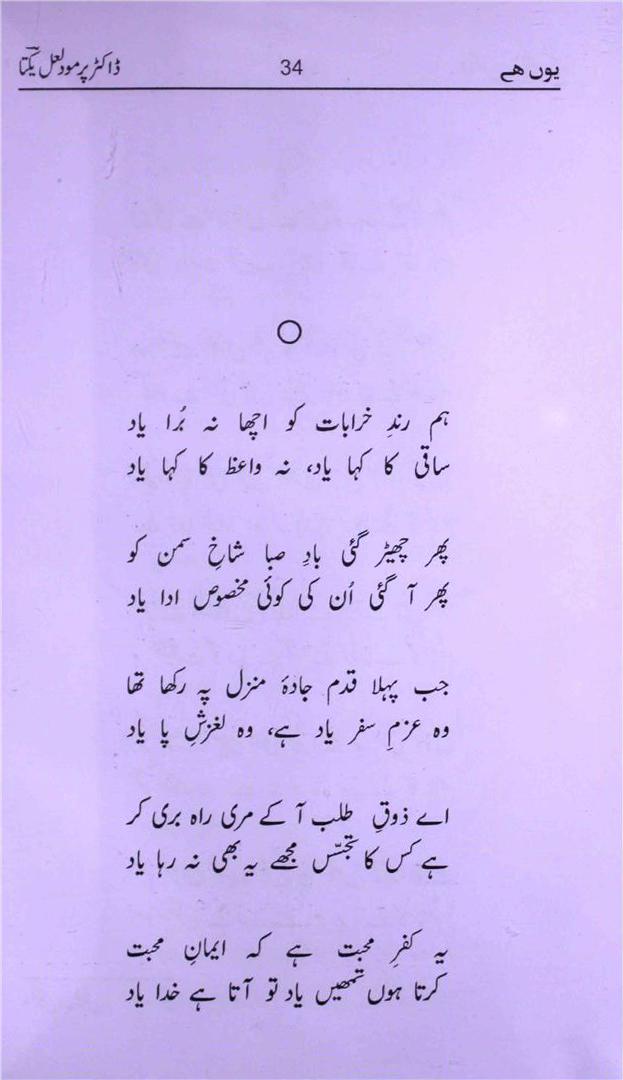 یوں ھے 34 ڈاکٹر پرمود لعل یکتا
ہم رندِ خرابات کو اچھا نہ بُرا یاد
ساقی کا کہا یاد، نہ واعظ کا کہا یاد
پھر چھیڑ گئی بادِ صبا شاخِ سمن کو
پھر آ گئی اُن کی کوئی مخصوص ادا یاد
جب پہلا قدم جادۂ منزل پہ رکھا تھا
وہ عزمِ سفر یاد ہے، وہ لغزشِ پا یاد
اے ذوقِ طلب آ کے مری راہ بری کر
ہے کس کا تجسّس مجھے یہ بھی نہ رہا یاد
یہ کفرِ محبت ہے کہ ایمانِ محبت
کرتا ہوں تمھیں یاد تو آتا ہے خدا یاد